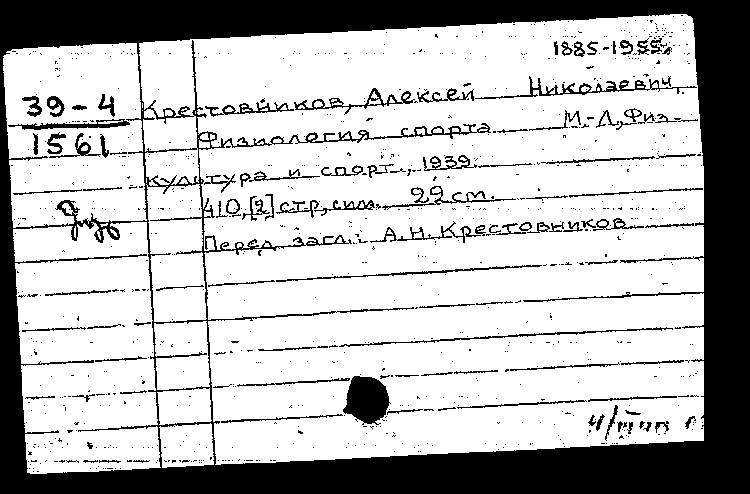 1885-1955.
39-4
1561
Крестовников, Алексей Николаевич.
Физиология спорта. М.-Л., Физ-
культура и спорт, 1939.
410, [2] стр, илл. 22 см.
Перед загл.: А.Н. Крестовников